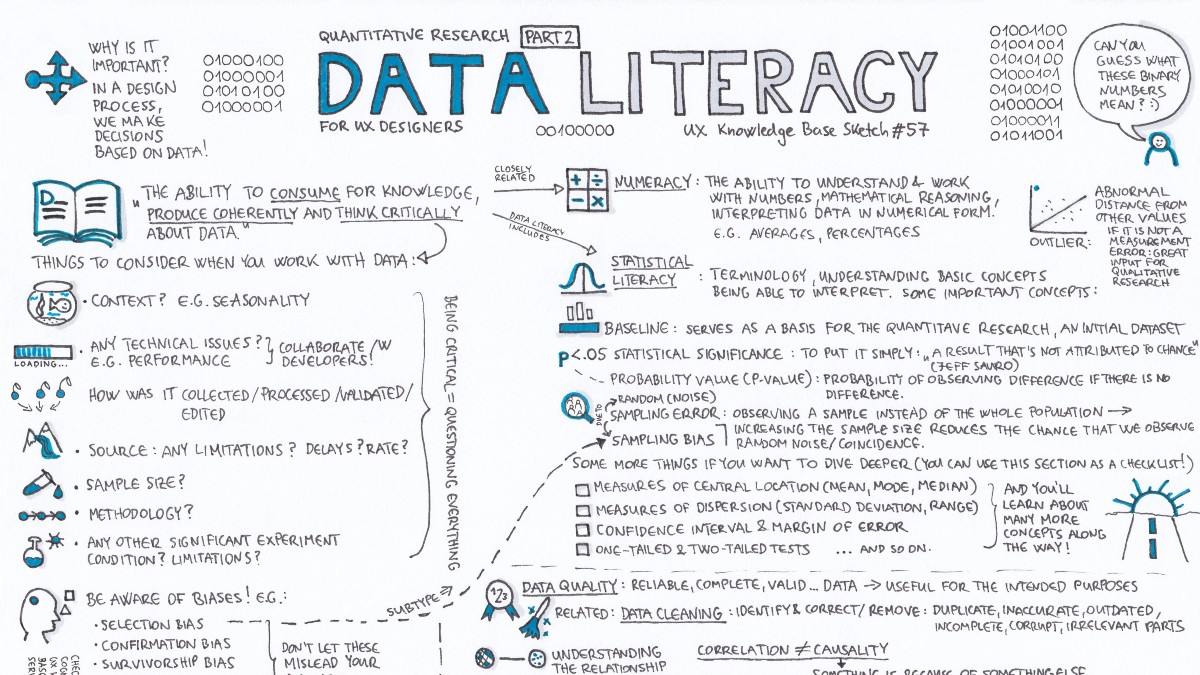 WHY IS IT
IMPORTANT?
IN A DESIGN
PROCESS,
WE MAKE
DECISIONS
BASED ON DATA!
01000100
01000001
01010100
01000001
QUANTITATIVE RESEARCH PART 2
DATA LITERACY
FOR UX DESIGNERS
00100000
UX Knowledge Base Sketch #57
01001100
01001001
01010100
01000101
01010010
01000001
01000011
01011001
CAN YOU
GUESS WHAT
THESE BINARY
NUMBERS
MEAN? :)
D
"THE ABILITY TO CONSUME FOR KNOWLEDGE,
PRODUCE COHERENTLY AND THINK CRITICALLY
ABOUT DATA."
THINGS TO CONSIDER WHEN YOU WORK WITH DATA:
• CONTEXT? E.G. SEASONALITY
LOADING...
• ANY TECHNICAL ISSUES?
E.G. PERFORMANCE
COLLABORATE /W
DEVELOPERS!
HOW WAS IT COLLECTED/PROCESSED/VALIDATED/
EDITED
• SOURCE: ANY LIMITATIONS? DELAYS? RATE?
• SAMPLE SIZE?
• METHODOLOGY?
• ANY OTHER SIGNIFICANT EXPERIMENT
CONDITION? LIMITATIONS?
BEING CRITICAL = QUESTIONING EVERYTHING
BE AWARE OF BIASES! E.G.:
• SELECTION BIAS
• CONFIRMATION BIAS
• SURVIVORSHIP BIAS
SUBTYPE
DON'T LET THESE
MISLEAD YOUR
CLOSELY
RELATED
+ ÷
− ×
NUMERACY: THE ABILITY TO UNDERSTAND & WORK
WITH NUMBERS, MATHEMATICAL REASONING,
INTERPRETING DATA IN NUMERICAL FORM.
E.G. AVERAGES, PERCENTAGES
DATA LITERACY
INCLUDES
STATISTICAL
LITERACY : TERMINOLOGY, UNDERSTANDING BASIC CONCEPTS
BEING ABLE TO INTERPRET. SOME IMPORTANT CONCEPTS:
OUTLIER:
ABNORMAL
DISTANCE FROM
OTHER VALUES
IF IT IS NOT A
MEASUREMENT
ERROR: GREAT
INPUT FOR
QUALITATIVE
RESEARCH
BASELINE: SERVES AS A BASIS FOR THE QUANTITAVE RESEARCH, AN INITIAL DATASET
P<.05 STATISTICAL SIGNIFICANCE: TO PUT IT SIMPLY: "A RESULT THAT'S NOT ATTRIBUTED TO CHANCE"
(JEFF SAURO)
PROBABILITY VALUE (P-VALUE): PROBABILITY OF OBSERVING DIFFERENCE IF THERE IS NO
DIFFERENCE.
DUE TO
RANDOM (NOISE)
SAMPLING ERROR: OBSERVING A SAMPLE INSTEAD OF THE WHOLE POPULATION →
SAMPLING BIAS
INCREASING THE SAMPLE SIZE REDUCES THE CHANCE THAT WE OBSERVE
RANDOM NOISE/COINCIDENCE.
SOME MORE THINGS IF YOU WANT TO DIVE DEEPER (YOU CAN USE THIS SECTION AS A CHECKLIST!)
MEASURES OF CENTRAL LOCATION (MEAN, MODE, MEDIAN)
MEASURES OF DISPERSION (STANDARD DEVIATION, RANGE)
CONFIDENCE INTERVAL & MARGIN OF ERROR
ONE-TAILED & TWO-TAILED TESTS ... AND SO ON.
AND YOU'LL
LEARN ABOUT
MANY MORE
CONCEPTS ALONG
THE WAY!
123
DATA QUALITY: RELIABLE, COMPLETE, VALID... DATA → USEFUL FOR THE INTENDED PURPOSES
RELATED: DATA CLEANING: IDENTIFY & CORRECT/REMOVE: DUPLICATE, INACCURATE, OUTDATED,
INCOMPLETE, CORRUPT, IRRELEVANT PARTS
UNDERSTANDING
THE RELATIONSHIP
CORRELATION ≠ CAUSALITY
SOMETHING IS BECAUSE OF SOMETHING ELSE